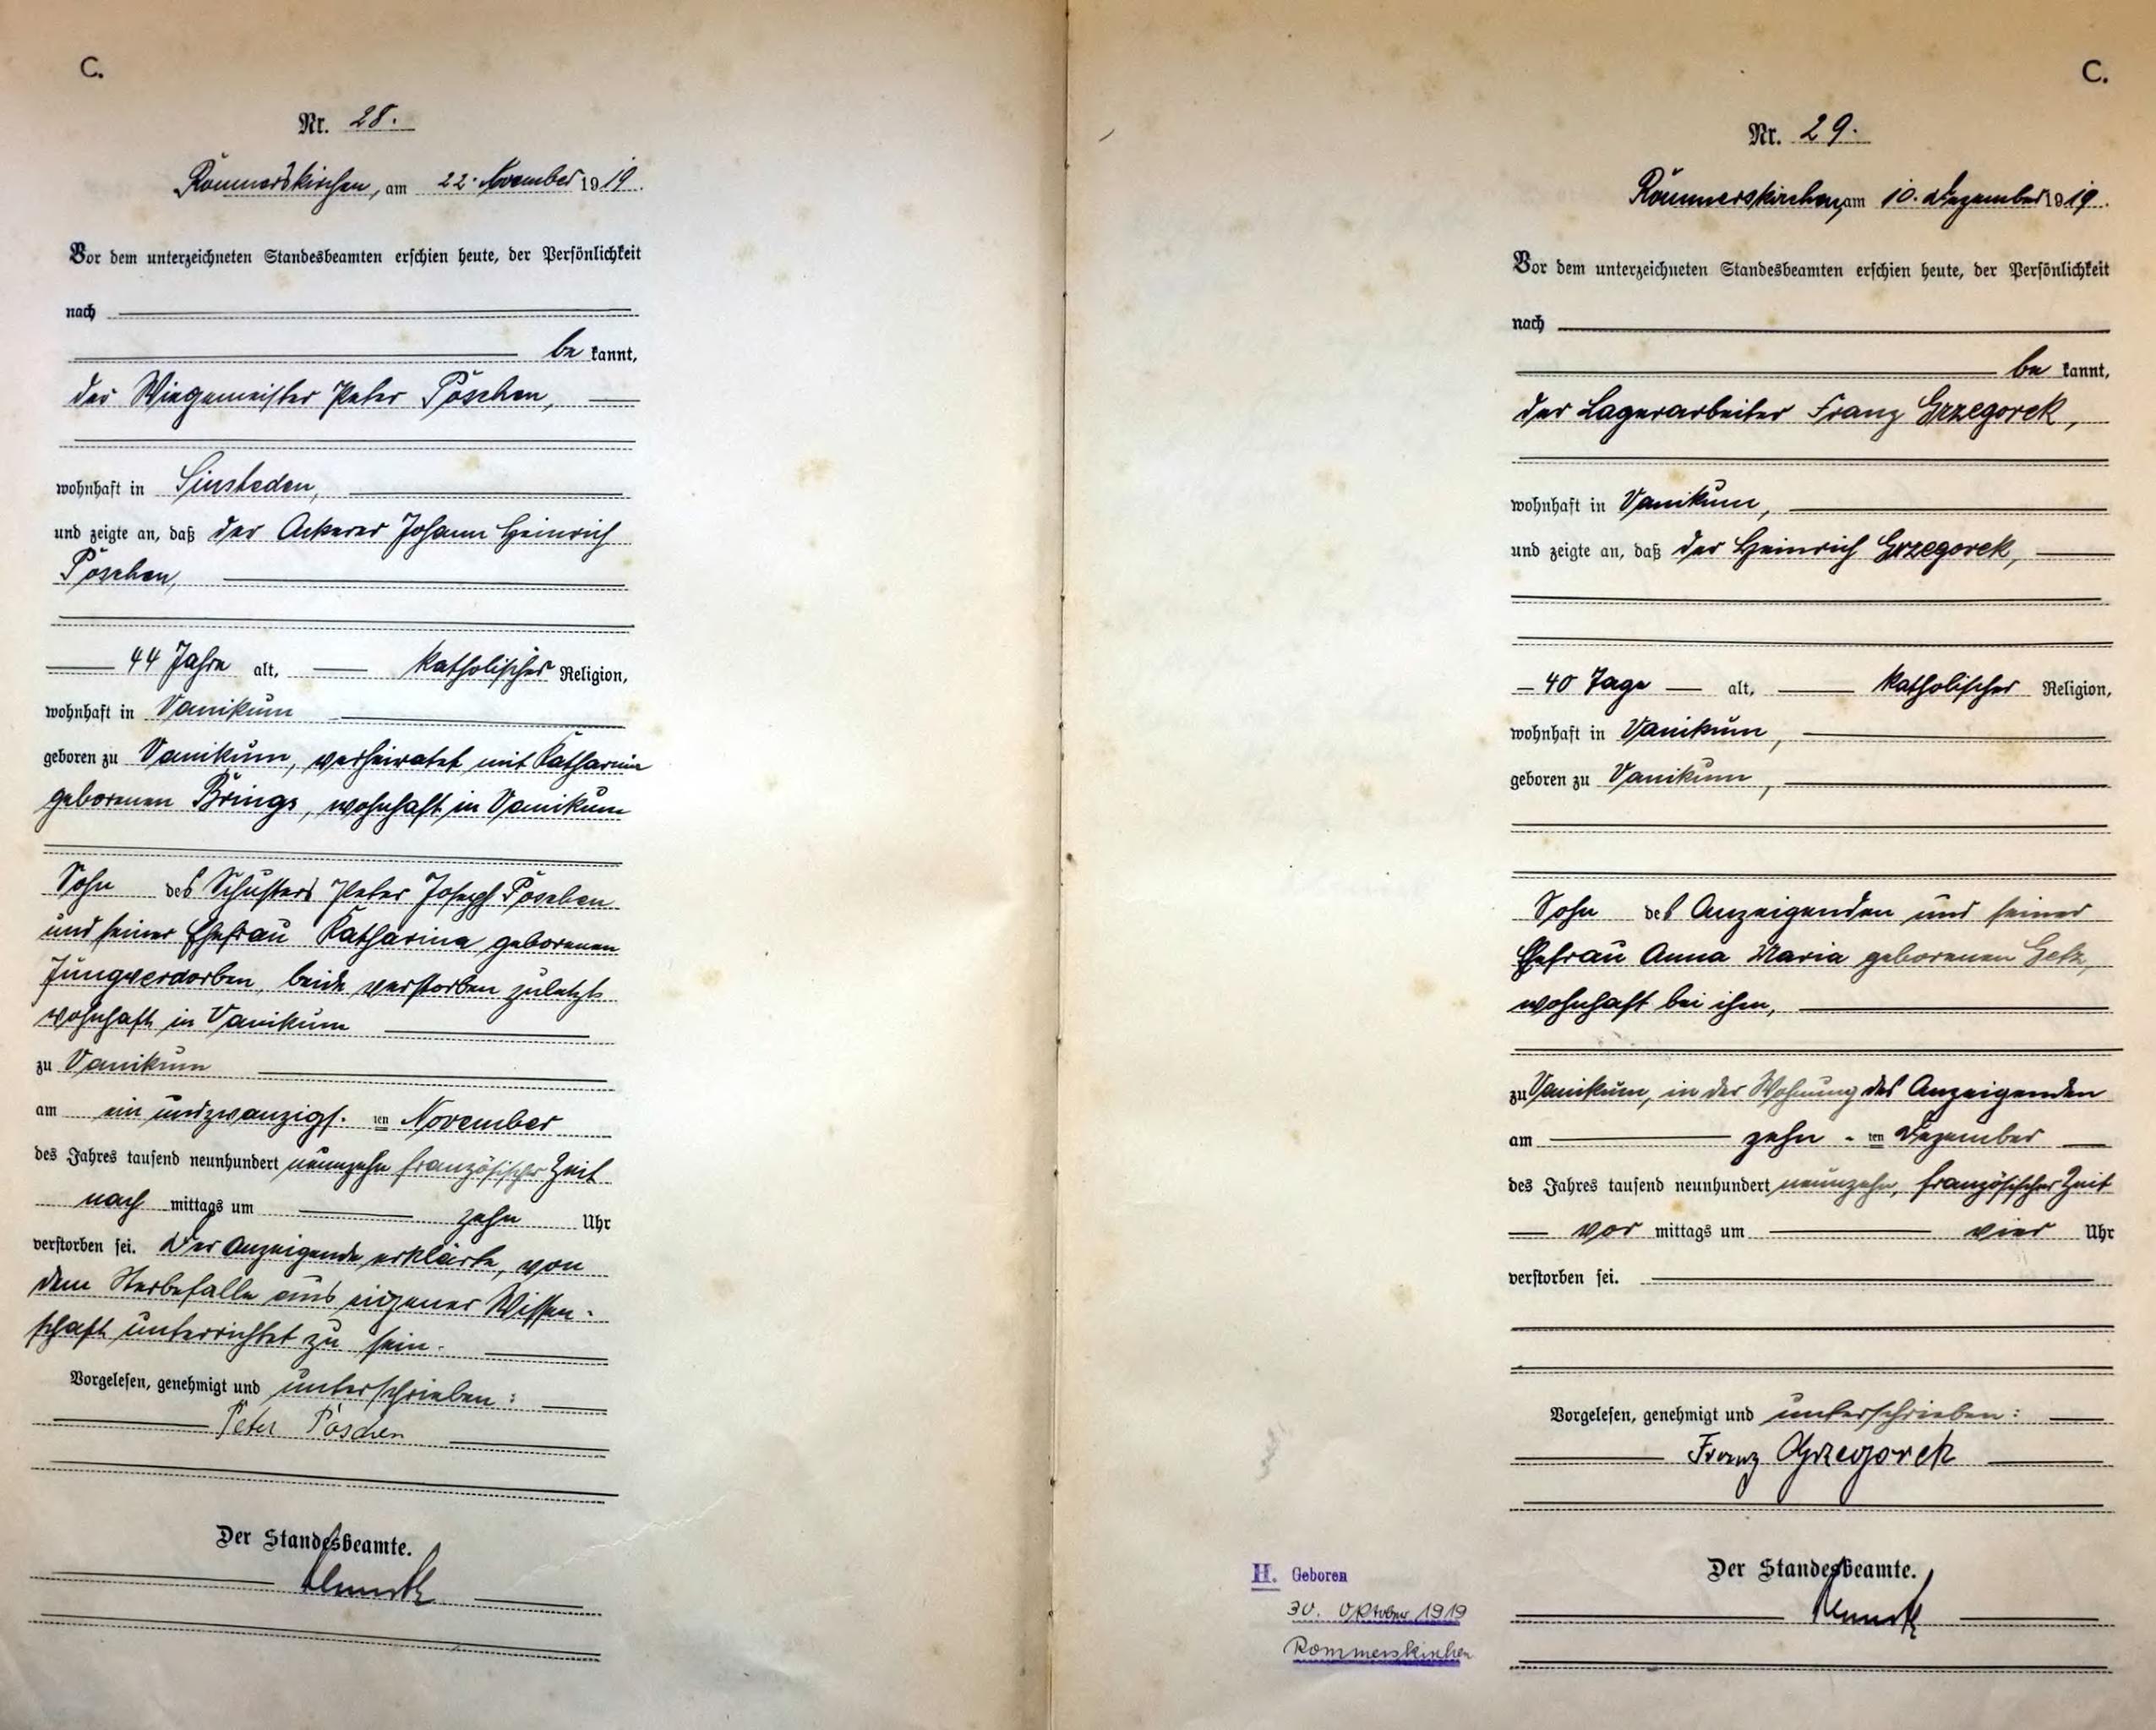 C.
Nr. 28.
Rommerskirchen, am 22. November 1919.
Vor dem unterzeichneten Standesbeamten erschien heute, der Persönlichkeit
nach
be kannt,
der Wiegemeister Peter Pöschen,
wohnhaft in Sinsteden,
und zeigte an, daß der Ackerer Johann Heinrich
Pöschen,
44 Jahre alt, katholischer Religion,
wohnhaft in Vanikum
geboren zu Vanikum, verheiratet mit Katharina
geborenen Brings, wohnhaft in Vanikum
Sohn des Schusters Peter Joseph Pöschen
und seiner Ehefrau Katharina geborenen
Jungverdorben, beide verstorben zuletzt
wohnhaft in Vanikum
zu Vanikum
am ein undzwanzigs. ten November
des Jahres tausend neunhundert neunzehn französischer Zeit
nach mittags um zehn Uhr
verstorben sei. Der Anzeigende erklärte, von
dem Sterbefalle aus eigener Wissen-
schaft unterrichtet zu sein.
Vorgelesen, genehmigt und unterschrieben:
Peter Pöschen
Der Standesbeamte.
C.
Nr. 29.
Rommerskirchen, am 10. Dezember 1919.
Vor dem unterzeichneten Standesbeamten erschien heute, der Persönlichkeit
nach
be kannt,
der Lagerarbeiter Franz Grzegorek,
wohnhaft in Vanikum,
und zeigte an, daß der Heinrich Grzegorek,
40 Tage alt, katholischer Religion,
wohnhaft in Vanikum,
geboren zu Vanikum,
Sohn des Anzeigenden und seiner
Ehefrau Anna Maria geborenen Getz,
wohnhaft bei ihm,
zu Vanikum, in der Wohnung des Anzeigenden
am zehn - ten Dezember
des Jahres tausend neunhundert neunzehn, französischer Zeit
vor mittags um vier Uhr
verstorben sei.
Vorgelesen, genehmigt und unterschrieben:
Franz Grzegorek
Der Standesbeamte.
H. Geboren
30. Oktober 1919
Rommerskirchen